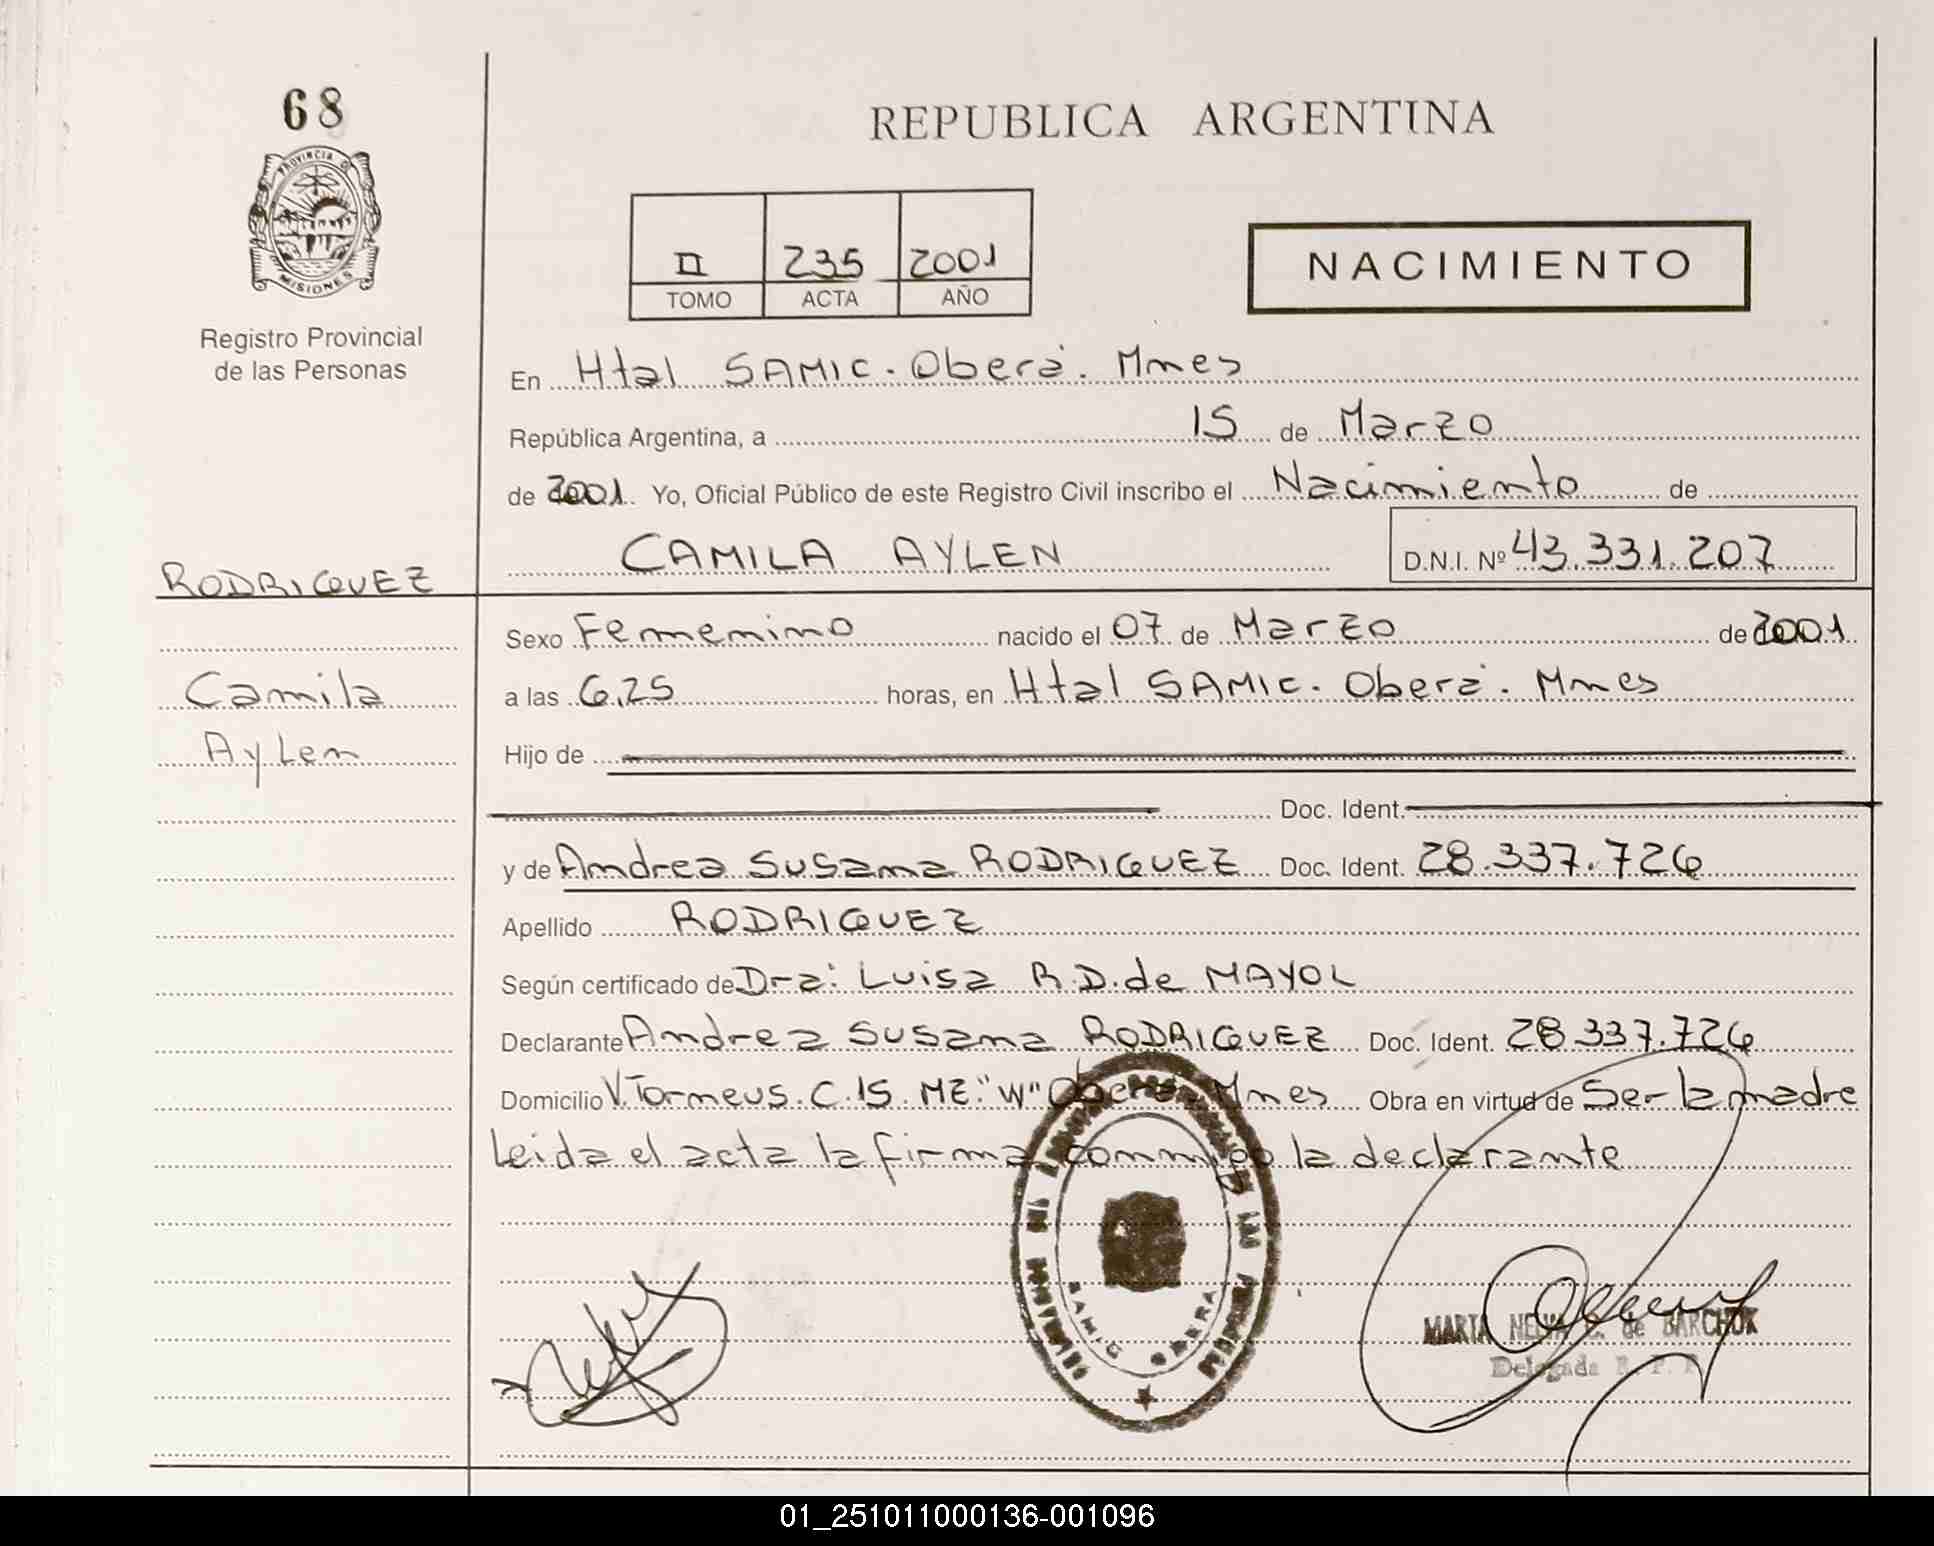 68
PROVINCIA D
MISIONES
Registro Provincial
de las Personas
REPUBLICA ARGENTINA
II 235 2001
TOMO ACTA AÑO
NACIMIENTO
En Htal SAMIC. Oberá. Mnes
República Argentina, a 15 de Marzo
de 2001. Yo, Oficial Público de este Registro Civil inscribo el Nacimiento de
CAMILA AYLEN D.N.I. Nº 43.331.207
RODRIGUEZ
Camila
Aylen
Sexo Femenino nacido el 07 de Marzo de 2001
a las 6,25 horas, en Htal SAMIC. Oberá. Mnes
Hijo de
Doc. Ident.
y de Andrea Susana RODRIGUEZ Doc. Ident. 28.337.726
Apellido RODRIGUEZ
Según certificado de Dra: Luisa R.D. de MAYOL
Declarante Andrea Susana RODRIGUEZ Doc. Ident. 28.337.726
Domicilio V. Torneus. C.15. MZ. "W" Oberá Mnes Obra en virtud de Ser la madre
Leida el acta la firma conmigo la declarante
SAMIC OBERA
MARIA NELVA C. de BARCHUK
Delegada R. P. P.
01_251011000136-001096